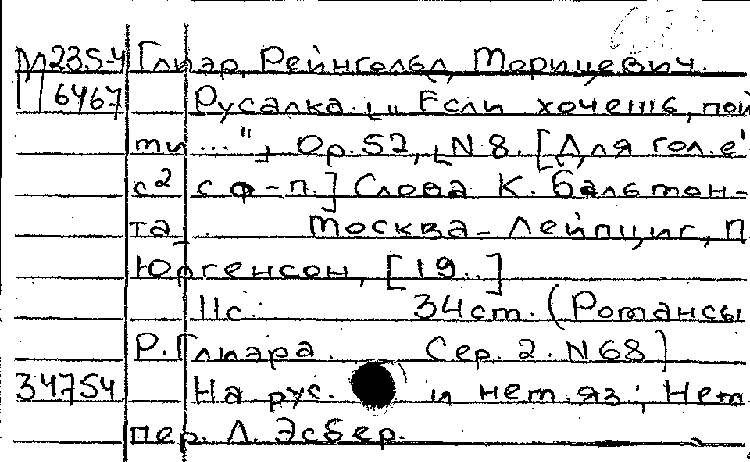 М235-4 Глиэр, Рейнгольд Морицевич.
6467 Русалка. „Если хочешь, пой
ти...", Ор. 52, N 8. [Для гол. е'
с² с ф-п.] Слова К. Бальмон-
та. Москва-Лейпциг, П
Юргенсон, [19..]
11с. 34 см. (Романсы
Р. Глиэра. Сер. 2. N 68)
34754 На рус. и нем. яз; Нем
пер. Л. Эсбер.